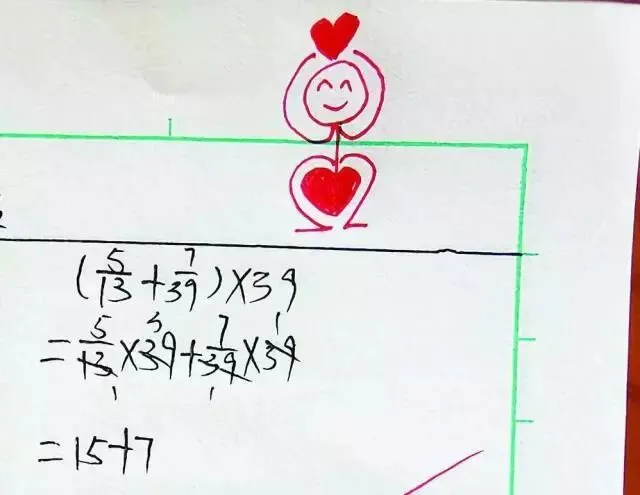 (5/13+7/39)×39
=5/13×39+7/39×39
=15+7